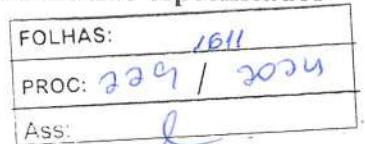 FOLHAS: 1611
PROC: 229 / 2024
Ass: